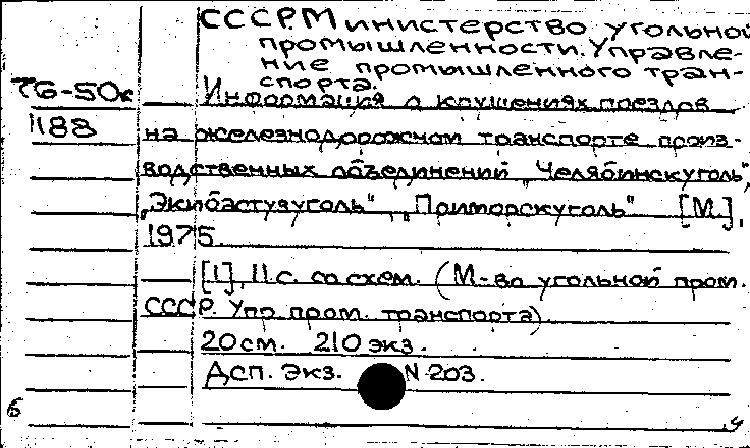 СССР. Министерство угольной
промышленности. Управле-
ние промышленного тран-
спорта.
Т6-50с
1188
Информация о крушениях поездов
на железнодорожном транспорте произ-
водственных объединений "Челябинскуголь",
"Экибастузуголь", "Приморскуголь" [М.],
1975.
[1], 11 с. со схем. (М-во угольной пром.
СССР. Упр пром. транспорта).
20 см. 210 экз.
Дсп. Экз. N 203.
б